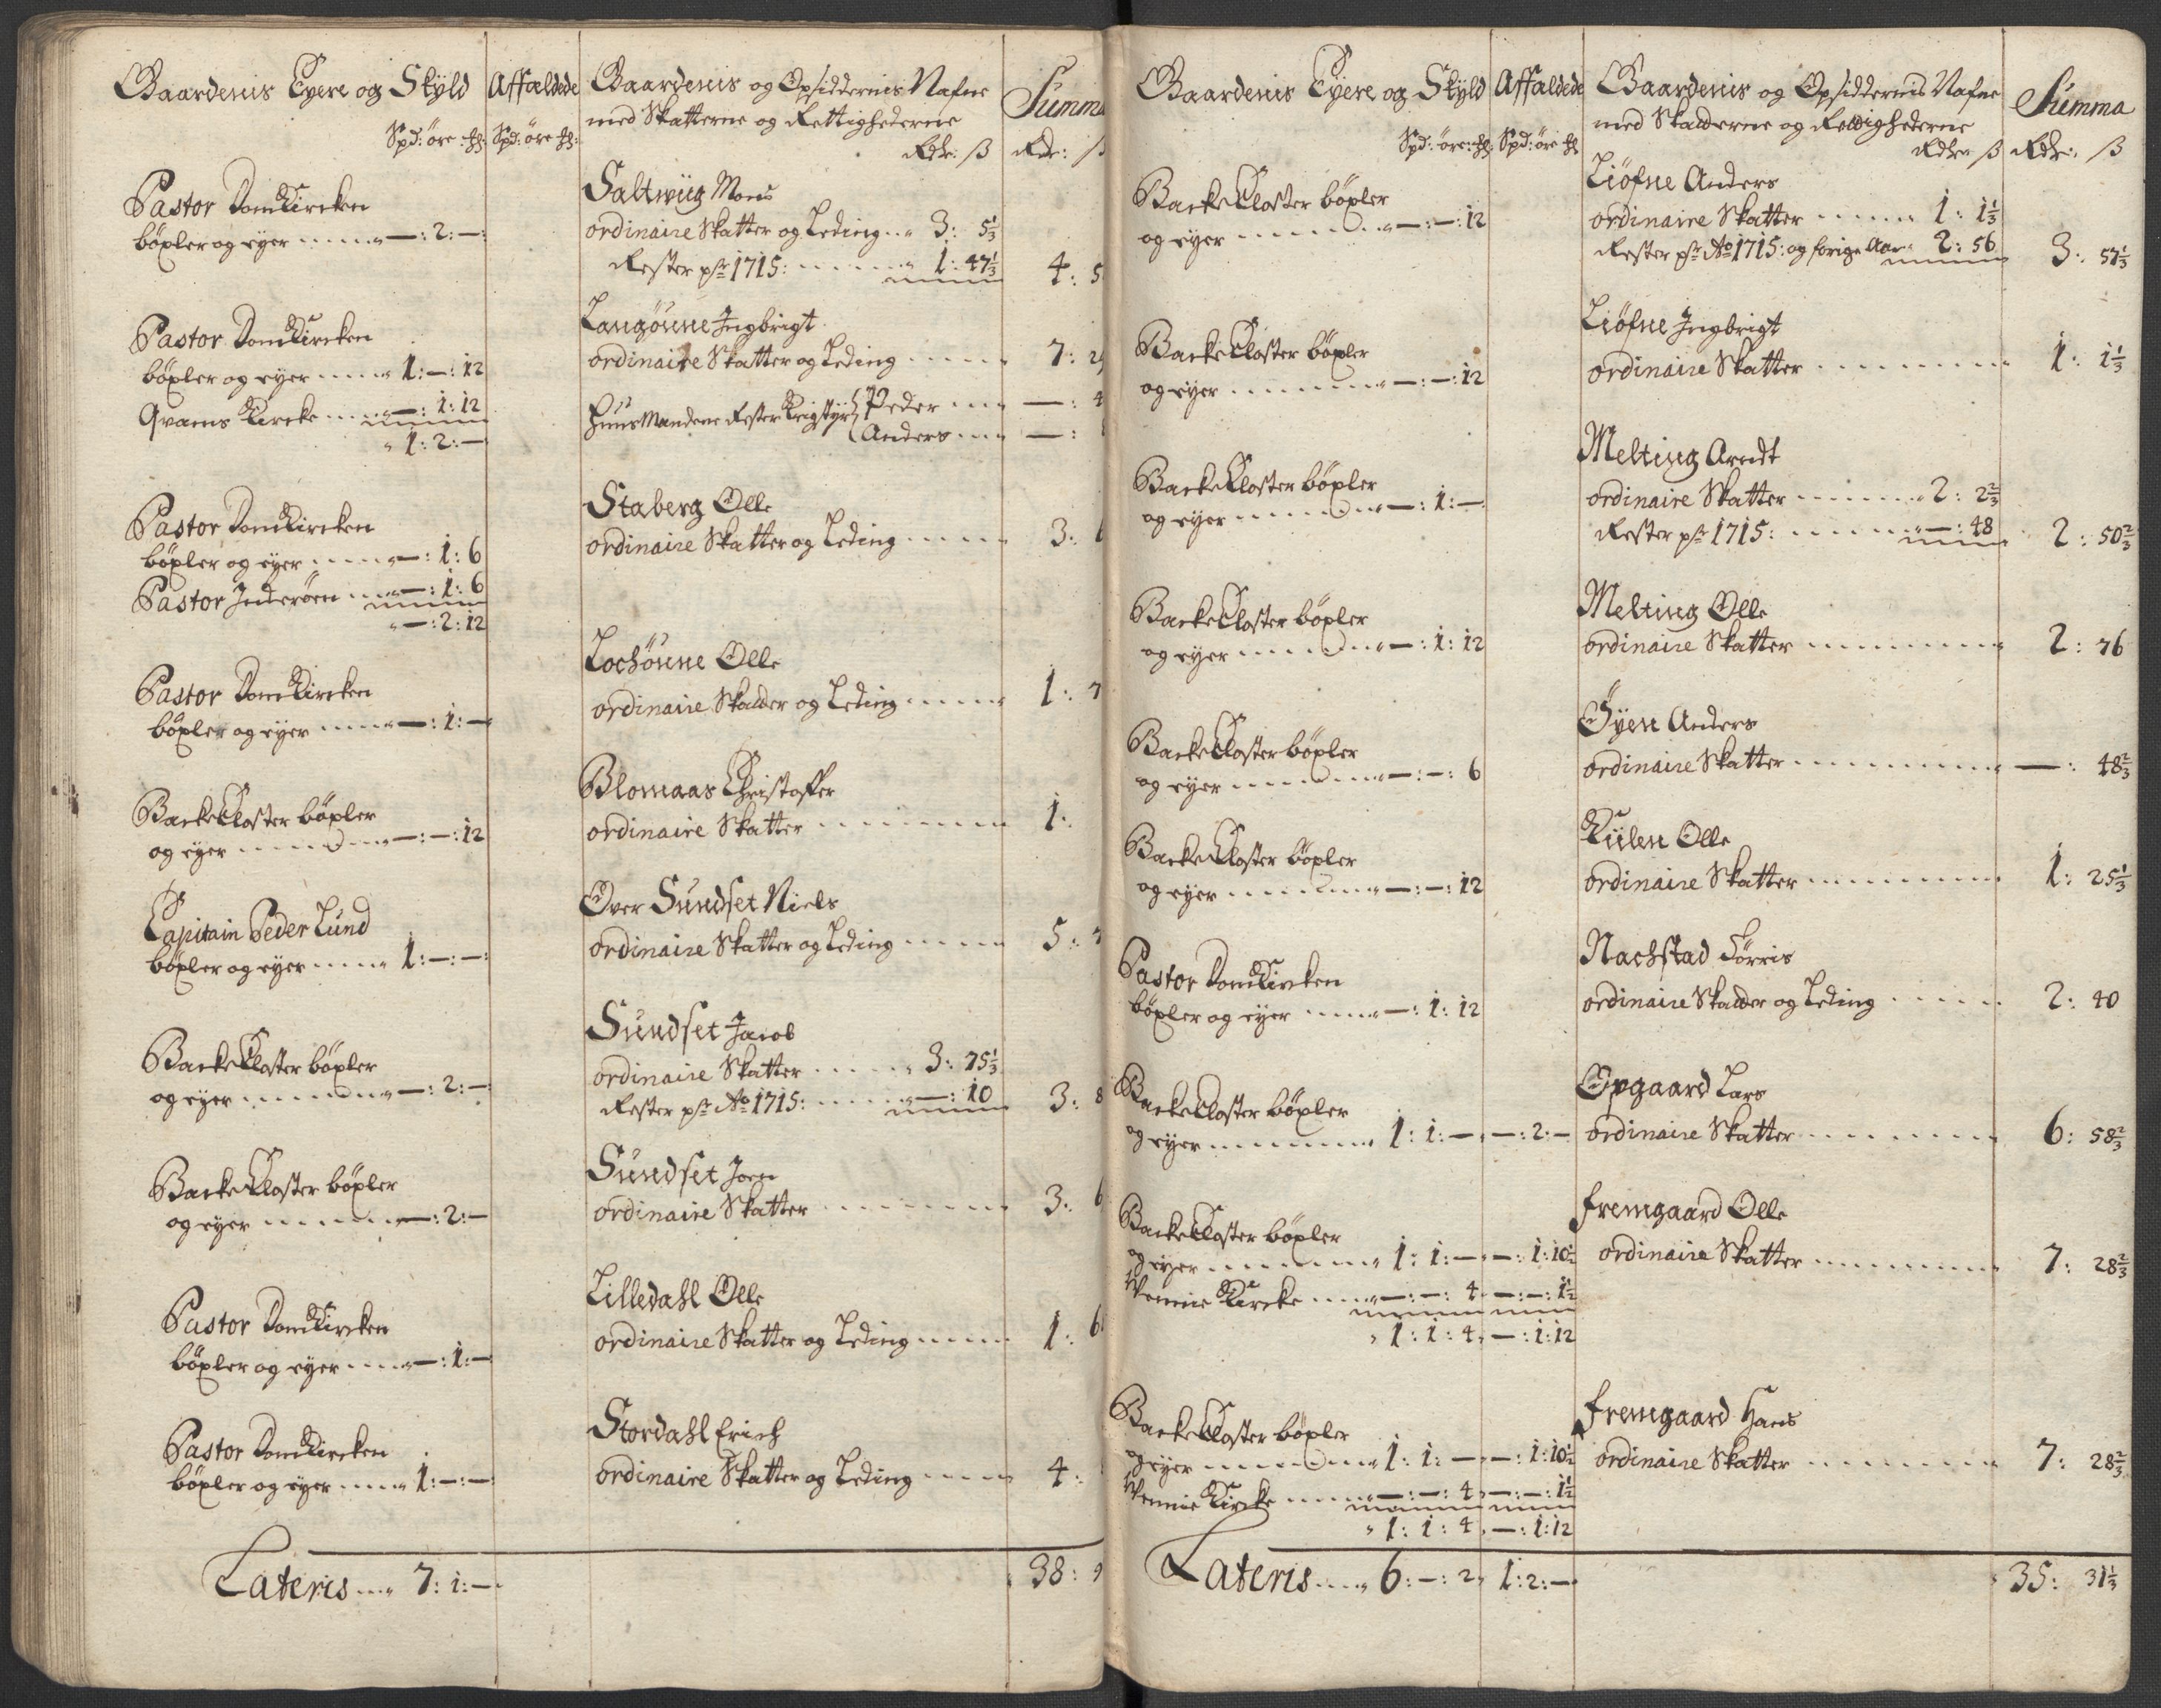 Gaardenis Eyere og Skyld
Spd: öre :
Affældede
Spd: öre
Gaardenis og Opsiddernis Nafne
med Skatterne og Rettighederne
Rdr: ß
Summ
Rdr: ß
Pastor DomKircken
böxler og eyer —: 2: —
Saltwüg Mons
ordinaire Skatter og Leding 3: 5⅓
Rester pr 1715: 1: 47⅓ 4: 5
Pastor DomKircken
böxler og eyer 1: —: 12
Qvams Kircke —: 1: 12
1: 2: —
Langöune Ingbrigt
ordinaire Skatter og Leding 7: 2
HuusMandene Rester Krigstyr Peder —: 4
Anders —:
Pastor DomKircken
böxler og eyer —: 1: 6
Pastor Inderöen —: 1: 6
—: 2: 12
Staberg Olle
ordinaire Skatter og Leding 3:
Pastor DomKircken
böxler og eyer —: 1: —
Lochöune Olle
ordinaire Skatter og Leding 1: 7
BackeKloster böxler
og eyer —: —: 12
Blomaas Christoffer
ordinaire Skatter 1:
Capitain Peder Lund
böxler og eyer 1: —: —
Over Sundset Niels
ordinaire Skatter og Leding 5:
BackeKloster böxler
og eyer —: 2: —
Sundset Jacob
ordinaire Skatter 3: 75⅓
Rester pr Ao 1715: —: 10 3: 8
BackeKloster böxler
og eyer —: 2: —
Sundset Joen
ordinaire Skatter 3: 6
Pastor DomKircken
böxler og eyer —: 1: —
Lilledahl Olle
ordinaire Skatter og Leding 1: 6
Pastor DomKircken
böxler og eyer 1: —: —
Stordahl Erich
ordinaire Skatter og Leding 4:
Lateris 7: 1: — 38:
Gaardenis Eyere og Skyld
Spd: öre:
Affældede
Spd: öre
Gaardenis og Opsiddernis Nafne
med Skatterne og Rettighederne
Rdr ß
Summa
Rdr: ß
BackeKloster böxler
og eyer —: —: 12
Liöfne Anders
ordinaire Skatter 1: 1⅓
Rester pr Ao 1715: og forige Aar 2: 56 3: 57⅓
BackeKloster böxler
og eyer —: —: 12
Liöfne Ingbrigt
ordinaire Skatter 1: 1⅓
BackeKloster böxler
og eyer —: 1: —
Melting Arndt
ordinaire Skatter 2: 2⅔
Rester pr 1715: —: 48 2: 50⅔
BackeKloster böxler
og eyer —: 1: 12
Melting Olle
ordinaire Skatter 2: 76
BackeKloster böxler
og eyer —: —: 6
Öyen Anders
ordinaire Skatter —: 48⅔
BackeKloster böxler
og eyer —: —: 12
Kiilen Olle
ordinaire Skatter 1: 25⅓
Pastor DomKircken
böxler og eyer —: 1: 12
Nachstad Törris
ordinaire Skatter og Leding 2: 40
BackeKloster böxler
og eyer 1: 1: — —: 2: —
Opgaard Lars
ordinaire Skatter 6: 58⅔
BackeKloster böxler
og eyer 1: 1: — —: 1: 10½
Wennie Kircke —: —: 4 —: —: 1½
1: 1: 4 —: 1: 12
Fremgaard Olle
ordinaire Skatter 7: 28⅔
BackeKloster böxler
og eyer 1: 1: — —: 1: 10½
Wennie Kircke —: —: 4 —: —: 1½
1: 1: 4 —: 1: 12
Fremgaard Hans
ordinaire Skatter 7: 28⅔
Lateris 6: —: 2 1: 2: — 35: 31⅓